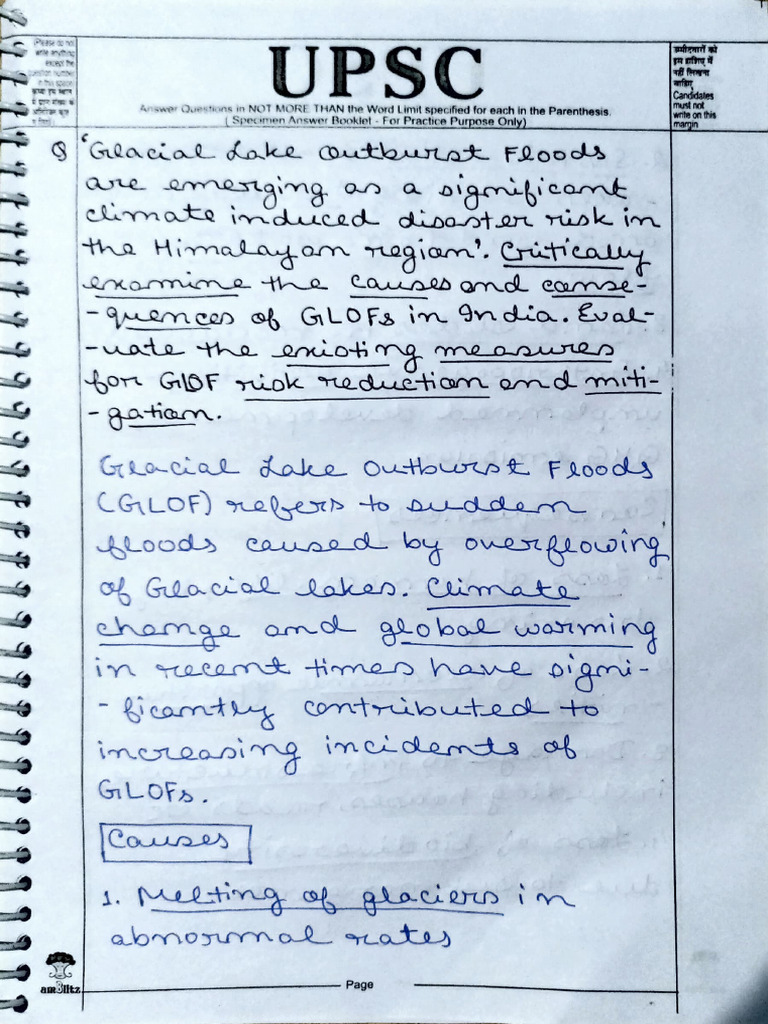 (Please do not
write anything
except the
question number
in this space)
UPSC
Answer Questions in NOT MORE THAN the Word Limit specified for each in the Parenthesis.
( Specimen Answer Booklet - For Practice Purpose Only)
उम्मीदवारों को
इस हाशिए में
नहीं लिखना
चाहिए
Candidates
must not
write on this
margin
Q 'Glacial Lake Outburst Floods
are emerging as a significant
climate induced disaster risk in
the Himalayan region'. Critically
examine the causes and conse-
-quences of GLOFs in India. Eval-
-uate the existing measures
for GLOF risk reduction and miti-
-gation.
Glacial Lake Outburst Floods
(GLOF) refers to sudden
floods caused by overflowing
of Glacial lakes. Climate
change and global warming
in recent times have signi-
-ficantly contributed to
increasing incidents of
GLOFs.
Causes
1. Melting of glaciers in
abnormal rates
am3litz
Page